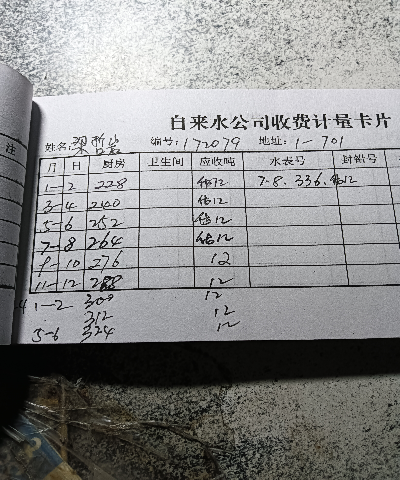 自来水公司收费计量卡片
姓名: 梁哲嵩 编号: 172079 地址: 1-701
注 月 日 厨房 卫生间 应收吨 水表号 封铅号
1-2 228 估12 7-8. 336. 估12
3-4 240 估12
5-6 252 估12
7-8 264 估12
9-10 276 12
11-12 288 12
1-2 300 12
312 12
5-6 324 12